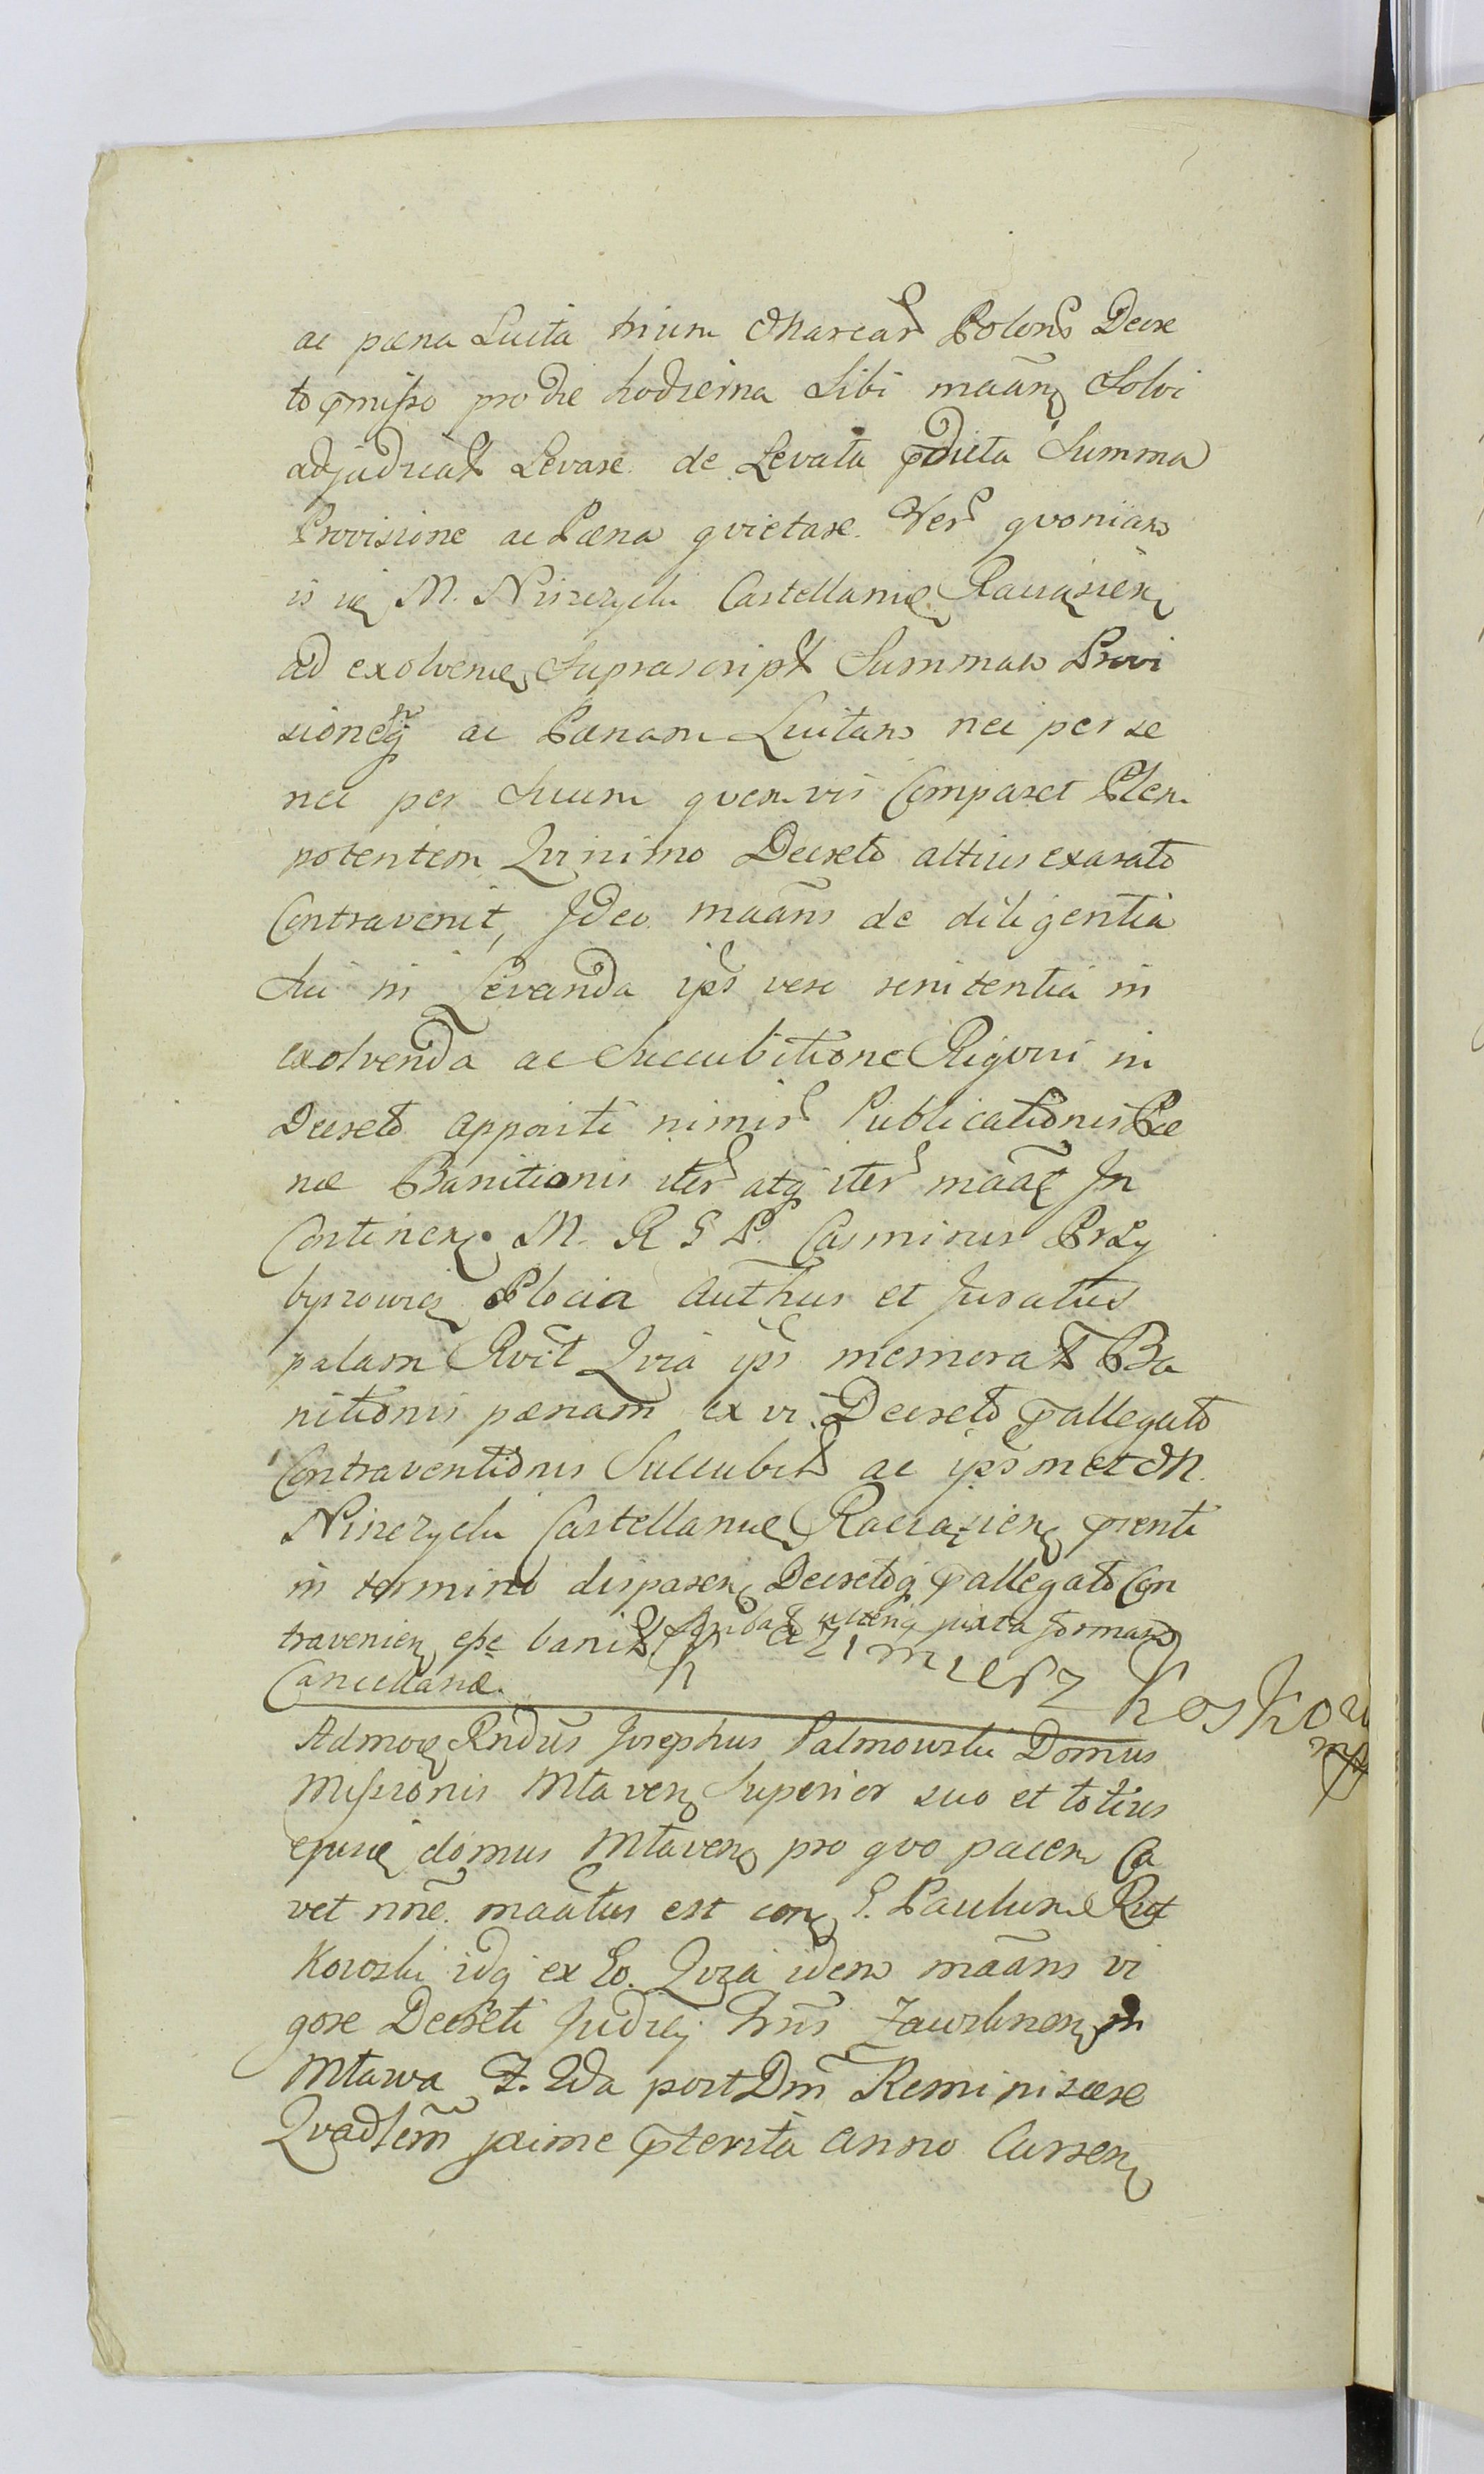 ac pæna Luita trium Marcar Polon Decre
to pmisso pro die hodierna Sibi maãn Solvi
adjudicat Levare de Levata pdicta Summa
Provisione ac Pæna qvietare. Ver qvoniam
is ie M. Niszczycki Castellanie Raciązien
ad exolvene Suprascript Summam Provi
sionēq ac Pænam Luitam nec per se
nec per Suum qvemvis Comparet Plen
potentem Qvinimo Decreto altius exarato
Contravenit, Ideo maãns de diligentia
Sui in Levanda ips vero renitentia in
exolvenda ac Succubitione Rigoris in
Decreto appositi nimir Publicationis Pæ
næ Banitionis iter atq iter maãt In
Continen. M. R G P. Casimirus Przy
byszowic Plocia Authus et Juratus
palam Rvit Qvia ips memorat Ba
nitionis pænam ex vi Decreto pallegato
Contraventionis Succubit ac ipsmet M.
Niszczycki Castellanie Raciązien prenti
in termino disparen Decretoq pallegato Con
travenien esse banit ulteriq juxta formam
Cancellariæ. Kazimierz Koskow
mp
Admoe Rndus Josephus Palmowski Domus
Missionis Mlaven Superior suo et totius
ejusie domus Mlaven pro qvo pacem Ca
vet nne. maãtus est con G. Paulum Rut
kowski idq ex Eo. Qvia idem maãns vi
gore Decreti Judicij Trris Zawskrnen in
Mlawa F. 2da post Dm Reminiscere
Qvadlem pxime pterita anno Curren